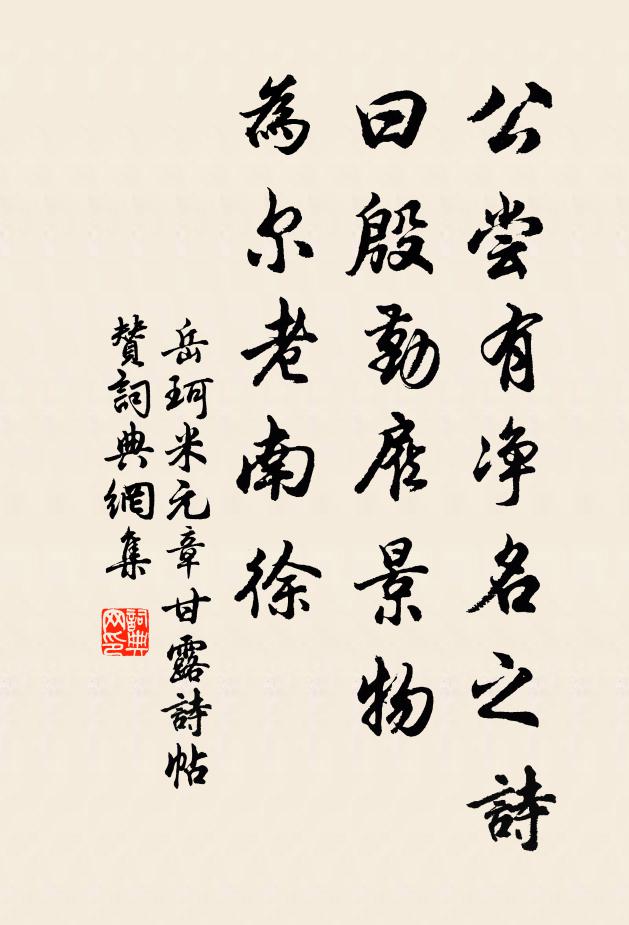 公尝有净名之詩
曰殷勤景物
為尔老南徐
岳珂米元章甘露詩帖
賛詞典網集
詞典網印